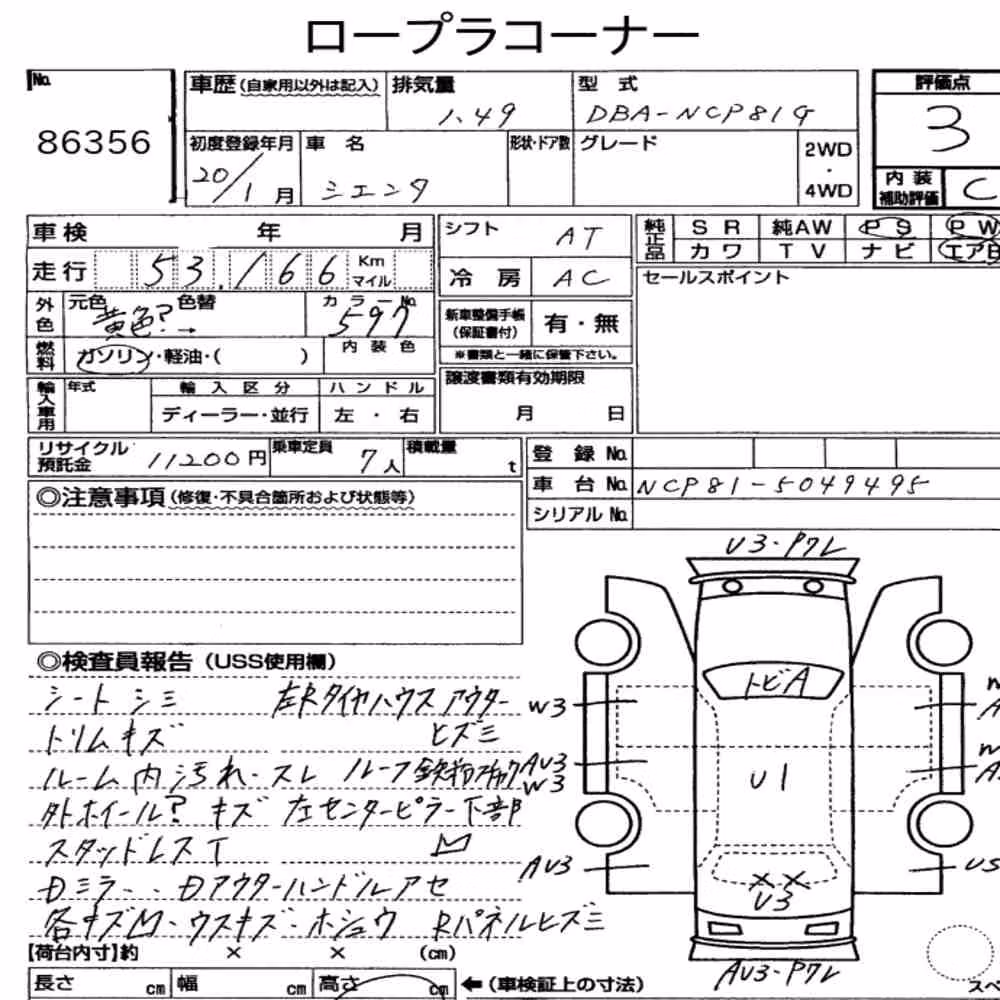 ロープラコーナー
No. 86356
車歴 (自家用以外は記入) 排気量 1.49 型式 DBA-NCP81G 評価点 3
初度登録年月 20/1月 車名 シエンタ 形状・ドア数 グレード 2WD・4WD
内装補助評価 C
車検 年 月 シフト AT 純正品 SR 純AW PS PW
カワ TV ナビ エアB
走行 53,166 Km マイル 冷房 AC セールスポイント
外色 元色 黄色? → 色替 カラーNo. 597 新車整備手帳 (保証書付) 有・無
燃料 ガソリン・軽油・( ) 内装色 ※書類と一緒に保管下さい。
輸入車用 年式 輸入区分 ハンドル 譲渡書類有効期限
ディーラー・並行 左・右 月 日
リサイクル預託金 11200円 乗車定員 7人 積載量 t 登録No.
車台No. NCP81-5049495
シリアルNo.
◎注意事項 (修復・不具合箇所および状態等)
U3・P7レ
◎検査員報告 (USS使用欄)
シート シミ 左Rタイヤハウス アウター
トリムキズ ヒズミ
ルーム内汚れ・スレ ルーフ鉄粉
外ホイール? キズ 左センターピラー下部
スタッドレスT
Dミラー・Dアウターハンドルアセ
各キズM・ウスキズ・ホシュウ Rパネルヒズミ
トビA
W3
AU3
W3
U1
AU3
US
XX
U3
AU3・P7レ
【荷台内寸】約 × × (cm)
長さ cm 幅 cm 高さ cm ←(車検証上の寸法)
スペ